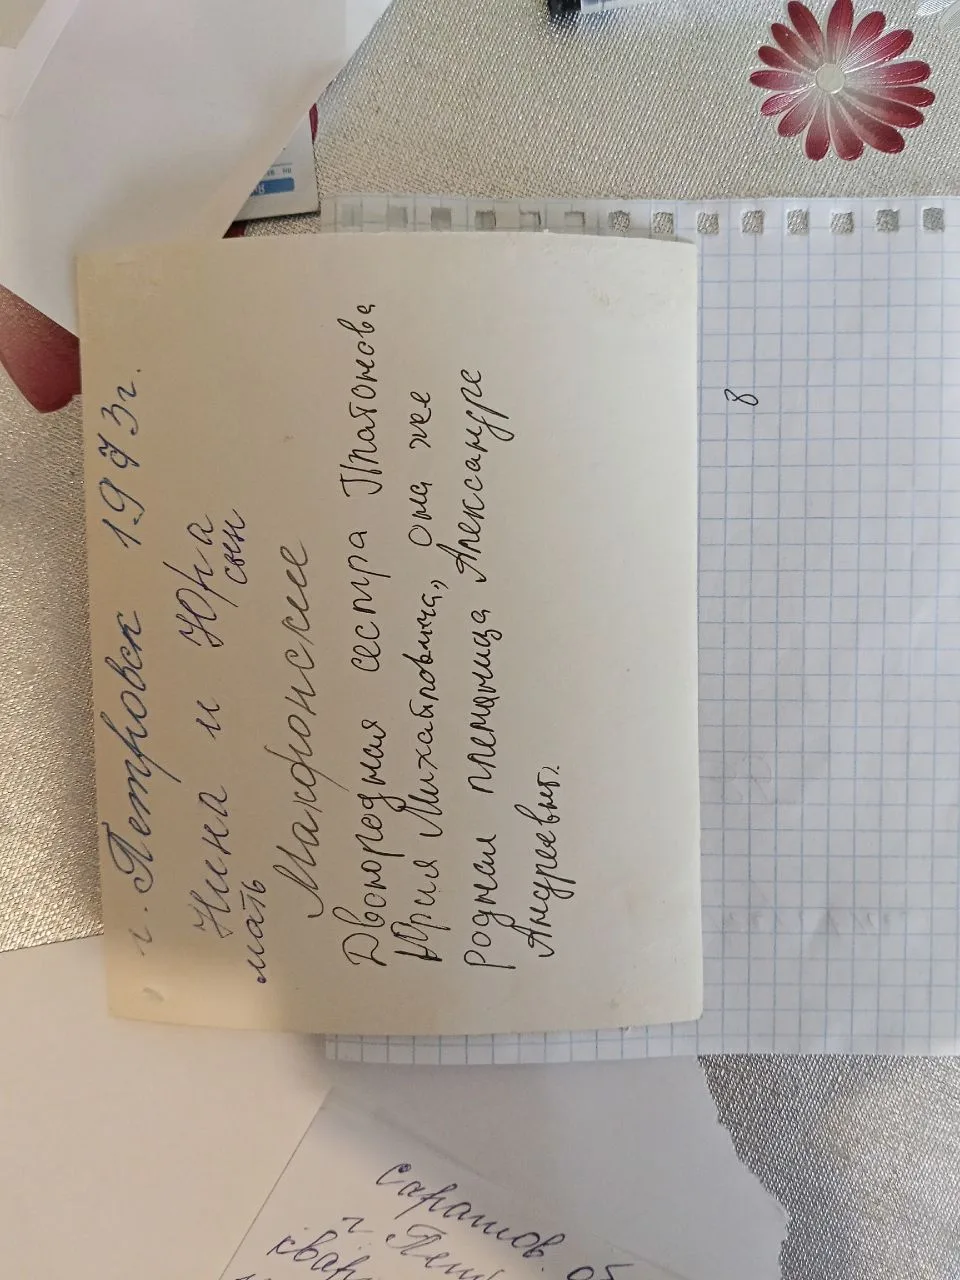 г. Петровск 1973г.
Нина и Юра
мать сын
Двоюродная сестра Платонова
Юрия Михайловича, она же
родная племяница Александре
Андреевне.
8
Саратов. об
г. Пет
квар